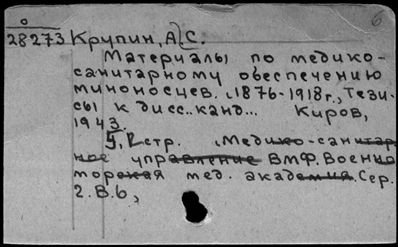 о
6
28273 Крупин, А.С.
Материалы по медико-
санитарному обеспечению
миноносцев. (1876-1918г., Тези-
сы к дисс.. канд... Киров,
1943.
5, 2 стр. (Медико-санитар
ное управление ВМФ. Военно
морская мед. академия. Сер.
2. В. 6,